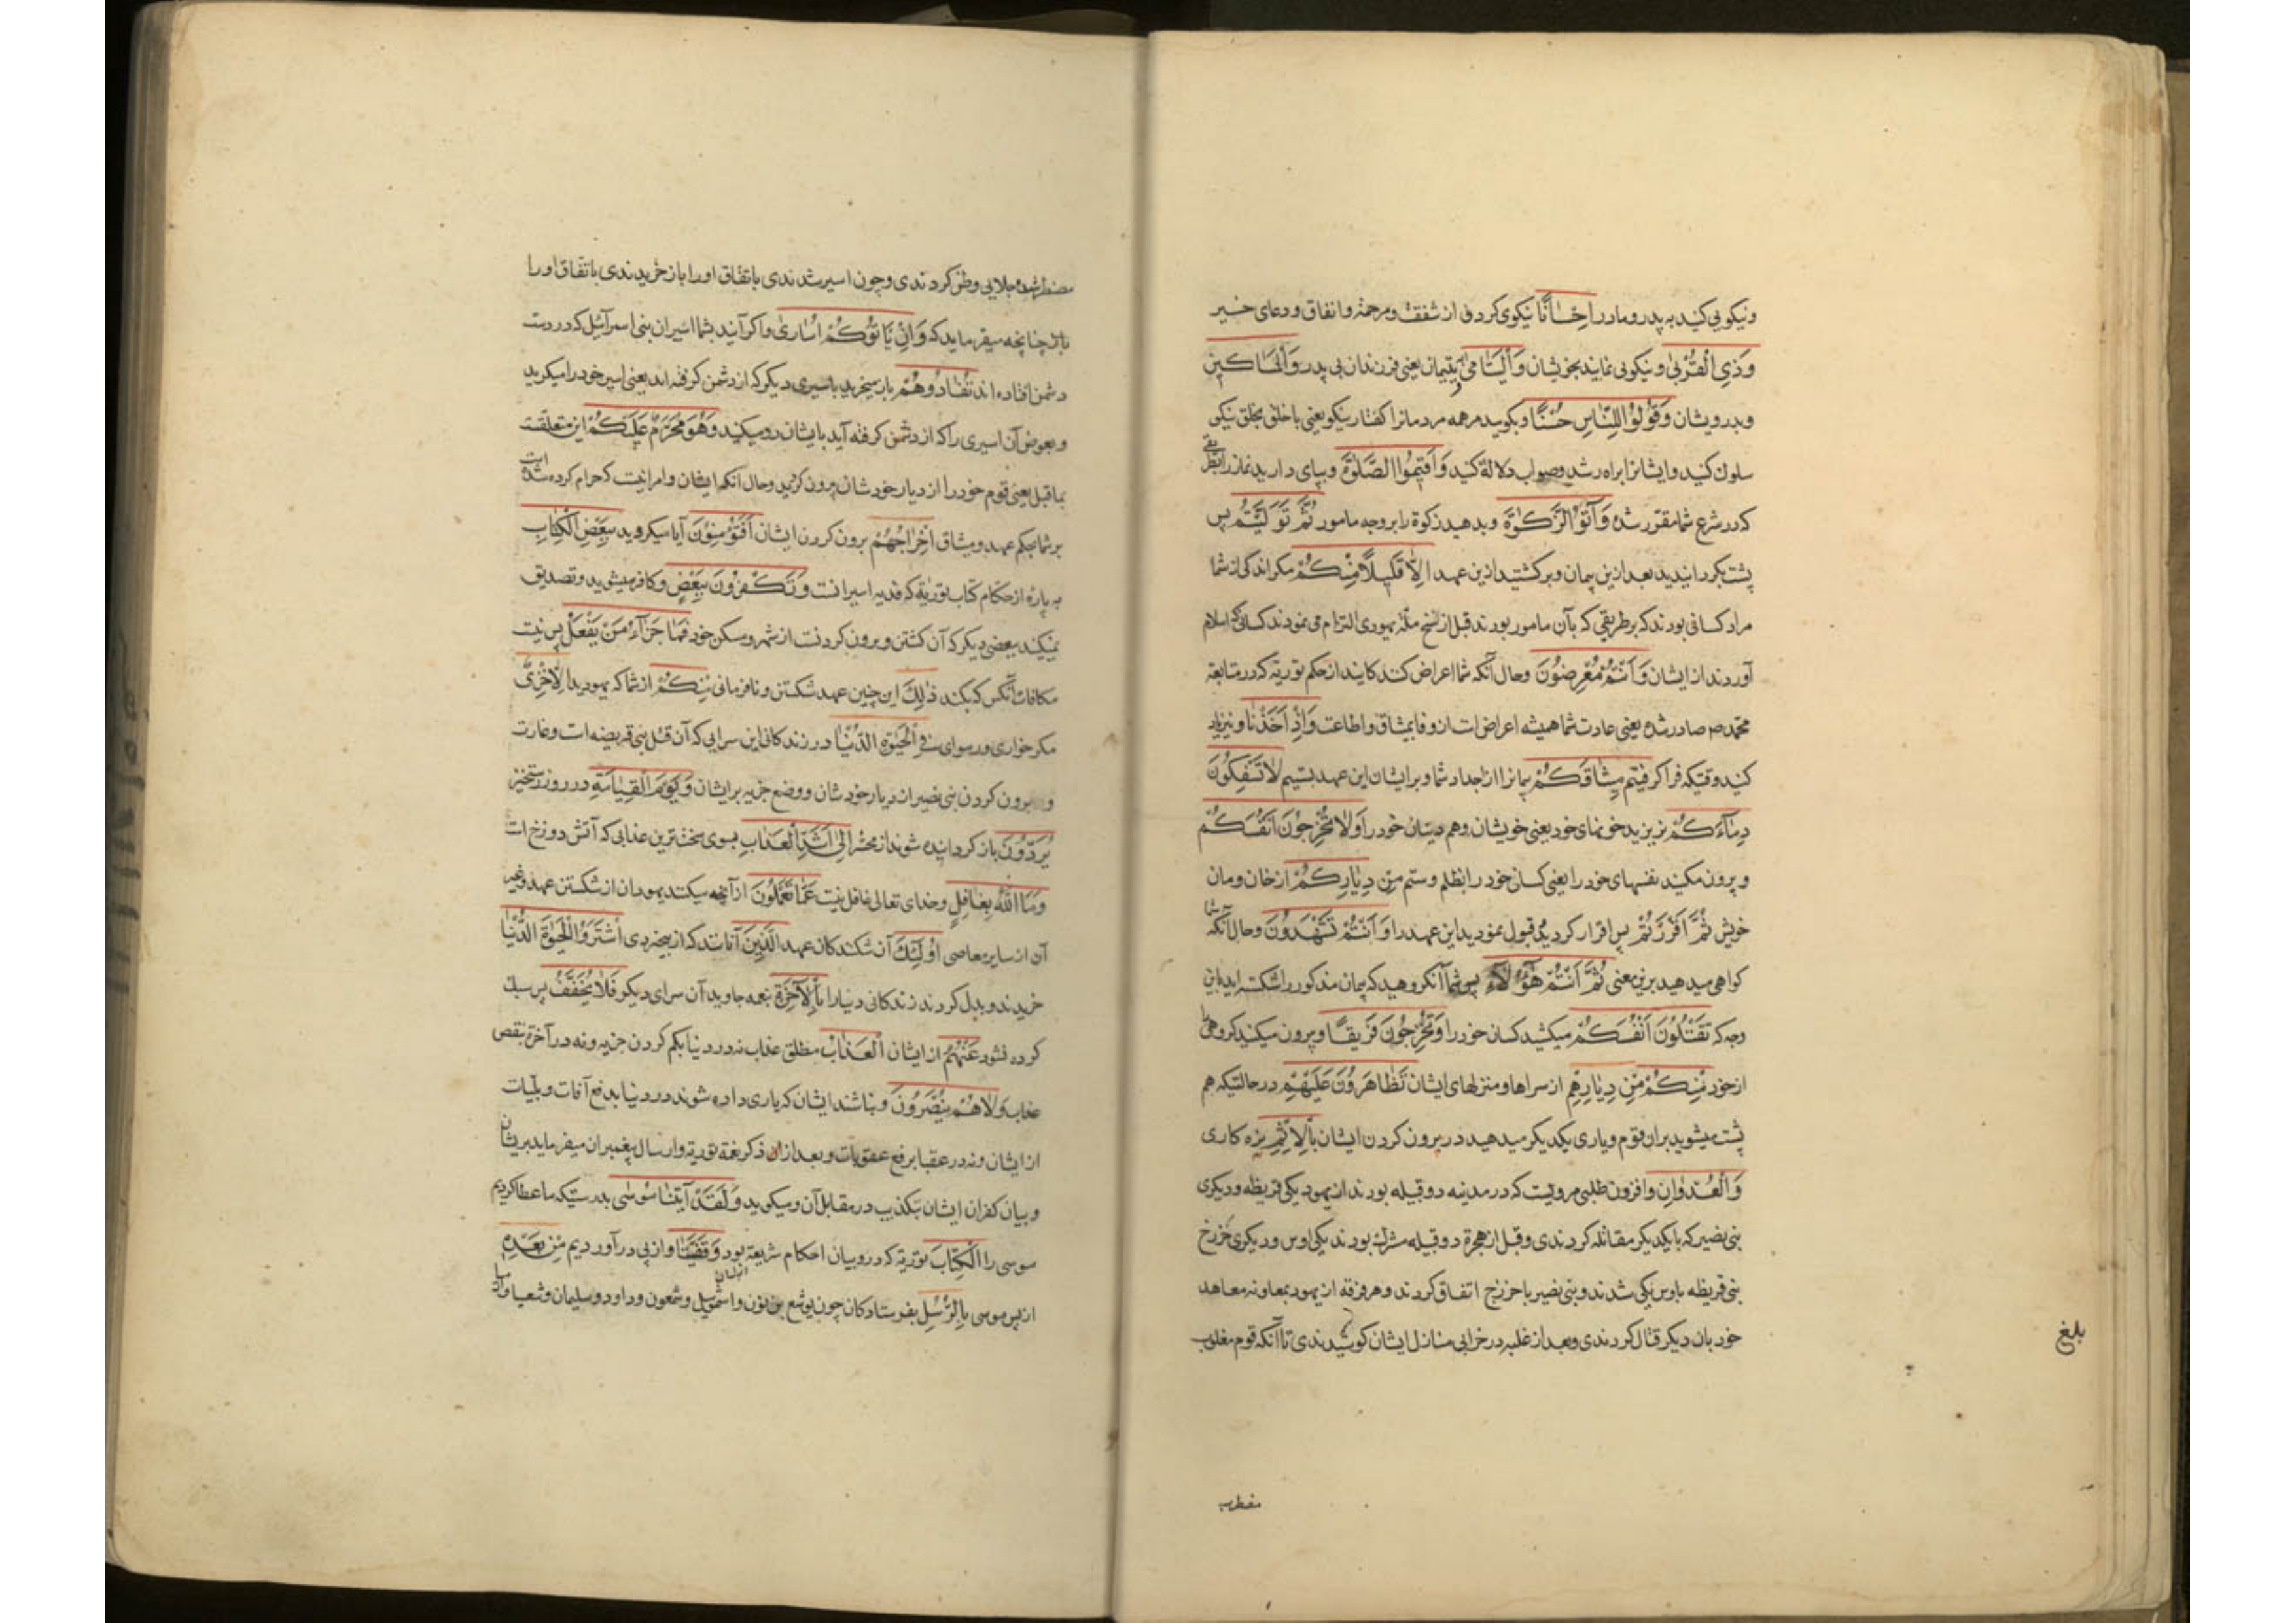 ونیکویی کنید به پدر و مادر اِحْسَانًا نیکوی کردنی از شفقت و مرحمة و انفاق و دعای خیر
وَذِي الْقُرْبىٰ و نیکویی نمایند بخویشان وَالْيَتَامىٰ و یتیمان یعنی فرزندان بی پدر وَالْمَسَاكِينِ
وبدرویشان وَقُولُوا لِلنَّاسِ حُسْنًا وبکویید مرهمه مردمانرا کفتار نیکو یعنی با خلق بخلق نیکو
سلوک کنید و ایشانرا براه رشد وصواب دلالة کنید وَاَقِيمُوا الصَّلٰوةَ وبپای دارید نماز را بطریقی
که در شرع شما مقرر شده وَآتُوا الزَّكٰوةَ وبدهید زکوة را بر وجه مامور ثُمَّ تَوَلَّيْتُمْ پس
پشت بکردانیدید بعد ازین پیمان وبرکشتید ازین عهد اِلَّا قَلِيلًا مِنْكُمْ مکر اندکی از شما
مراد کسانی بودند که بر طریقی که بآن مامور بودند قبل از نسخ ملة یهودی التزام می نمودند کسانی که اسلام
آوردند از ایشان وَاَنْتُمْ مُعْرِضُونَ وحال آنکه شما اعراض کنند کانید از حکم توریة که در متابعة
محمد ص صادر شده یعنی عادت شما همیشه اعراض است از وفا بمیثاق و اطاعت وَاِذْ اَخَذْنَا ونیز یاد
کنید وقتیکه فرا کرفتیم مِيثَاقَكُمْ پیمانرا از اجداد شما و بر ایشان این عهد بستیم لَاتَسْفِكُونَ
دِمَاءَكُمْ نریزید خونهای خود یعنی خویشان وهم دینان خود را وَلَا تُخْرِجُونَ اَنْفُسَكُمْ
وبیرون مکنید نفسهای خود را یعنی کسان خود را بظلم وستم مِنْ دِيَارِكُمْ از خان ومان
خویش ثُمَّ اَقْرَرْتُمْ پس اقرار کردید و قبول نمودید این عهد را وَاَنْتُمْ تَشْهَدُونَ وحال آنکه شما
کواهی میدهید برین معنی ثُمَّ اَنْتُمْ هٰؤُلَاءِ پس شما آنکروهید که پیمان مذکور را شکسته اید باین
وجه که تَقْتُلُونَ اَنْفُسَكُمْ میکشید کسان خود را وَتُخْرِجُونَ فَرِيقًا وبیرون میکنید کروهی را
از خود مِنْكُمْ مِنْ دِيَارِهِم از سراها ومنزلهای ایشان تَظَاهَرُونَ عَلَيْهِمْ در حالتیکه هم
پشت میشوید بران قوم ویاری یکدیکر میدهید در بیرون کردن ایشان بِالْاِثْمِ بزه کاری
وَالْعُدْوَانِ وافزون طلبی مرویست که در مدینه دو قبیله بودند از یهود یکی قریظه و دیکری
بنی نضیر که با یکدیکر مقاتله کردندی وقبل از هجرة دو قبیله مشرک بودند یکی اوس ودیکری خزرج
بنی قریظه باوس یکی شدند وبنی نضیر با خزرج اتفاق کردند وهر فرقه از یهود بمعاونه معاهد
خود با ن دیکر قتال کردندی وبعد از غلبه در خرابی منازل ایشان کوشیدندی تا آنکه قوم مغلوب
بلغ
مضطرب
مضطر شده جلایی وطن کردندی وچون اسیر شدندی باتفاق اورا باز خریدندی باتفاق اورا
چنانچه میفرماید که وَاِنْ يَاْتُوكُمْ اُسَارىٰ واکر آیند بشما اسیران بنی اسرآئیل که در دست
دشمن افتاده اند تُفَادُوهُمْ باز میخرید باسیری دیکر که از دشمن کرفته اند یعنی اسیر خود را میکرید
وبعوض آن اسیری را که از دشمن کرفته آید بایشان رد میکنید وَهُوَ مُحَرَّمٌ عَلَيْكُمْ این متعلقست
بماقبل یعنی قوم خود را از دیار خودشان بیرون کردید وحال آنکه ایشان وامر انیست که حرام کرده شده است
بر شما بحکم عهد ومیثاق اِخْرَاجُهُمْ بیرون کردن ایشان اَفَتُؤْمِنُونَ آیا میکروید بِبَعْضِ الْكِتَابِ
به پاره از احکام کتاب توریة که فدیه اسیرانست وَتَكْفُرُونَ بِبَعْضٍ وکافر میشوید وتصدیق
نمیکنید ببعضی دیکر که آن کشتن وبیرون کردنست از شهر ومسکن خود فَمَا جَزَاءُ مَنْ يَفْعَلُ پس نیست
مکافات آنکس که بکند ذٰلِكَ این چنین عهد شکستن و نافرمانی مِنْكُمْ از شما که یهودید اِلَّاخِزْيٌ
مکر خواری ورسوای فِي الْحَيٰوةِ الدُّنْيَا در زندکانی این سرایی که آن قتل بنی قریضه است وغارت
و بیرون کردن بنی نضیر از دیار خودشان ووضع جزیه بر ایشان وَيَوْمَ الْقِيَامَةِ در روز رستخیز
يُرَدُّونَ باز کردانیده شوند از محشر اِلىٰ اَشَدِّ الْعَذَابِ بسوی سخت ترین عذابی که آتش دوزخ است
وَمَا اللّٰهُ بِغَافِلٍ وخدای تعالی غافل نیست عَمَّا تَعْمَلُونَ از آنچه میکنند یهودان از شکستن عهد وغیر
آن از سایر معاصی اُولٰئِكَ آن شکنندکان عهد الَّذِينَ آنانند که از بیخردی اشْتَرَوُا الْحَيٰوةَ الدُّنْيَا
خریدند وبدل کردند زندکانی دنیا را بِالْآخِرَةِ بنعمه جاوید آن سرای دیکر فَلَا يُخَفَّفُ پس سبک
کرده نشود عَنْهُمُ از ایشان الْعَذَابُ مطلق عذاب نه در دنیا بکم کردن جزیه ونه در آخرة بنقص
عذاب وَلَا هُمْ يُنْصَرُونَ ونباشند ایشان که یاری داده شوند در دنیا بدفع آفات وبلیات
از ایشان ونه در عقبا برفع عقوبات وبعد ازان ذکر نعمة توریة وارسال پیغمبران میفرماید بریشان
وبیان کفران ایشان بتکذیب در مقابل آن ومیکوید وَلَقَدْ آتَيْنَا مُوسَى بدرستیکه ما عطا کردیم
موسی را الْكِتَابَ توریة که درو بیان احکام شریعة بود وَقَفَّيْنَا واز پی در آوردیم مِنْ بَعْدِهِ
از پس موسی بِالرُّسُلِ بفرستادکان چون یوشع بن نون واشمویل وشمعون وداود وسلیمان وشعیا